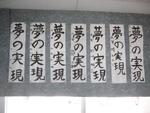 夢の実現
夢の実現
夢の実現
夢の実現
夢の実現
夢の実現
夢の実現